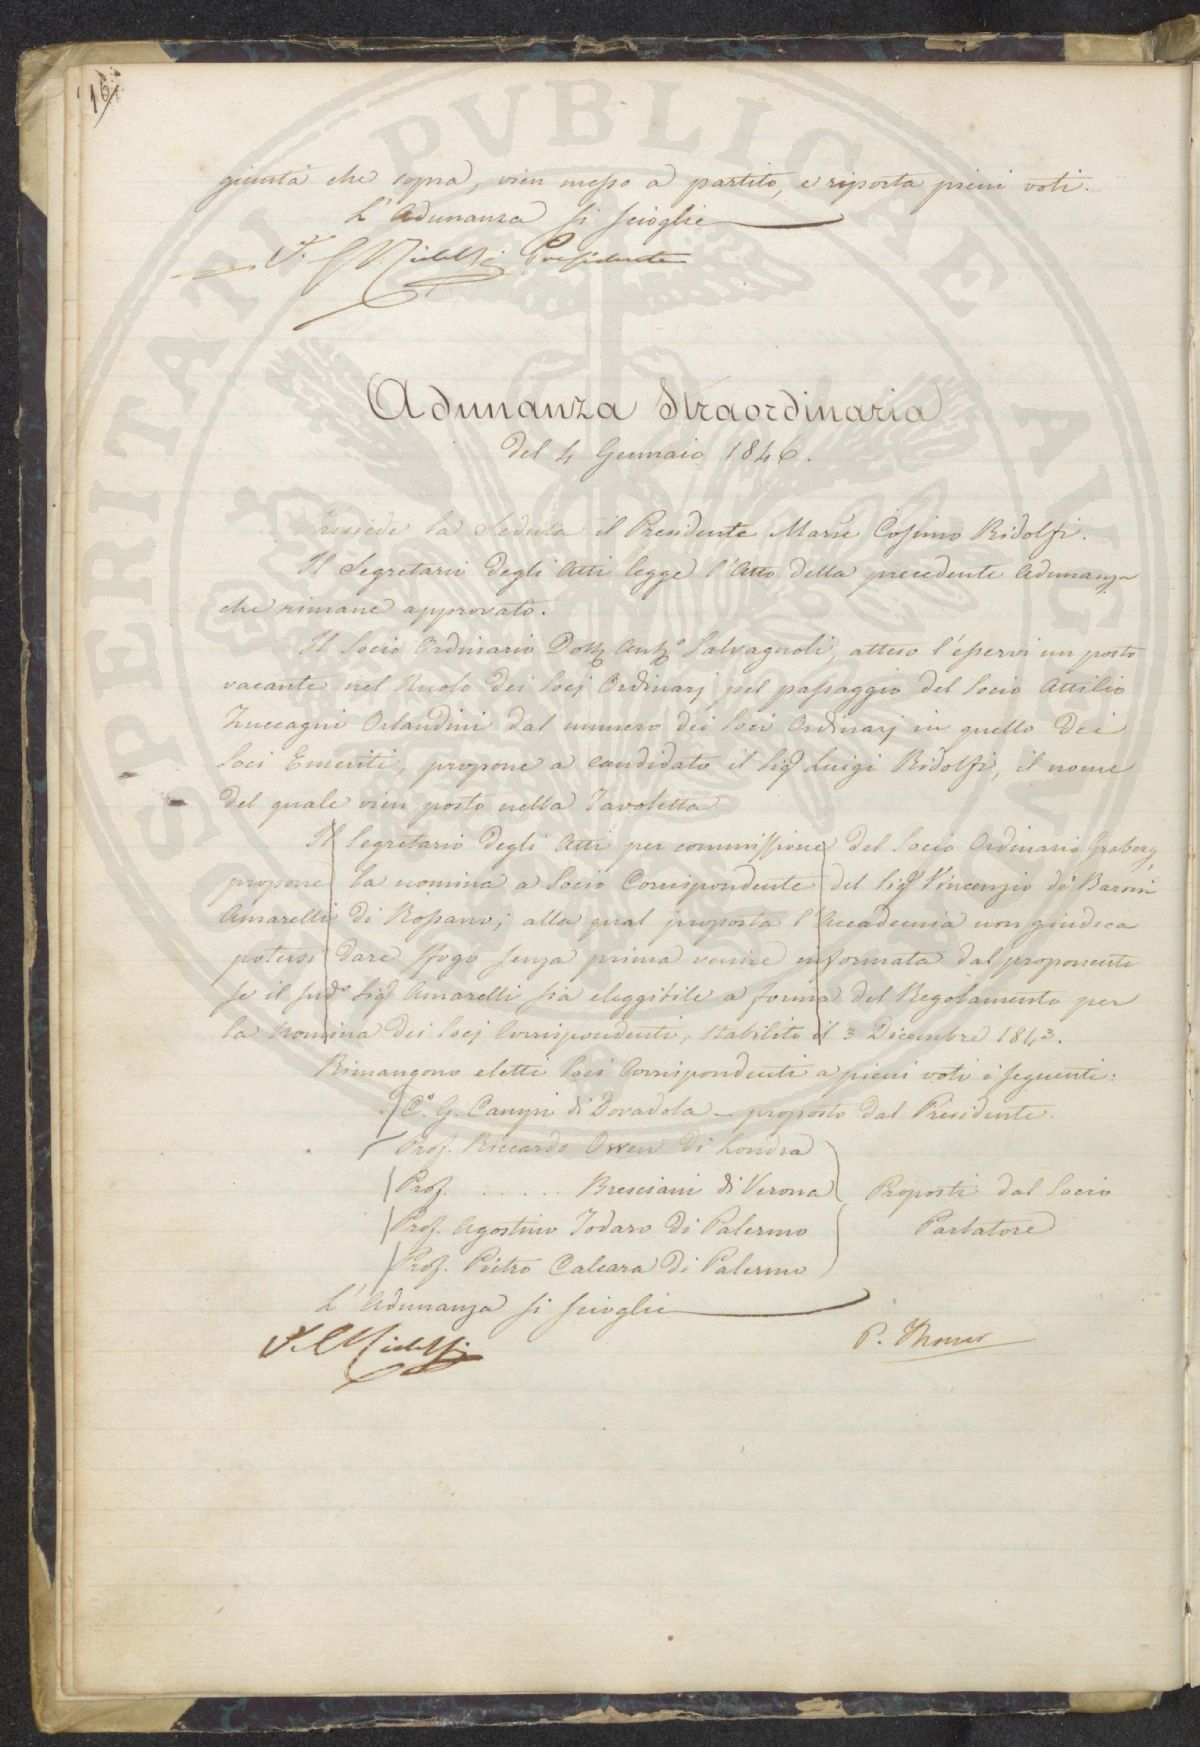 16
giunta che sopra, vien messo a partito, e riporta pieni voti.
L'Adunanza si scioglie
V. C. Ridolfi Presidente
Adunanza Straordinaria
del 4 Gennaio 1846.
Presiede la Seduta il Presidente Marse Cosimo Ridolfi.
Il Segretario degli Atti legge l'Atto della precedente Adunanza
che rimane approvato.
Il Socio Ordinario Dott Anto Salvagnoli, atteso l'esservi un posto
vacante nel Ruolo dei Socj Ordinarj pel passaggio del Socio Attilio
Zuccagni Orlandini dal numero dei Soci Ordinarj in quello dei
Soci Emeriti, propone a candidato il Sig Luigi Ridolfi, il nome
del quale vien posto nella Tavoletta
Il Segretario degli Atti per commissione del Socio Ordinario Graberg,
propone la nomina a Socio Corrispondente del Sig Vincenzio de' Baroni
Amarelli di Rossano; alla qual proposta l'Accademia non giudica
potersi dare sfogo senza prima venire informata dal proponente
se il sudo Sig Amarelli sia eleggibile a forma del Regolamento per
la nomina dei Socj Corrispondenti, stabilito il 3 Dicembre 1843.
Rimangono eletti Soci Corrispondenti a pieni voti i seguenti:
Ce. G. Campi di Dovadola - proposto dal Presidente.
Prof. Riccardo Owen di Londra
Prof. ...... Bresciani di Verona Proposti dal Socio
Prof. Agostino Todaro di Palermo Parlatore
Prof. Pietro Calcara di Palermo
L'Adunanza si scioglie
V. C. Ridolfi P. Thouar
PROSPERITATI PVBLICAE AVGENDAE